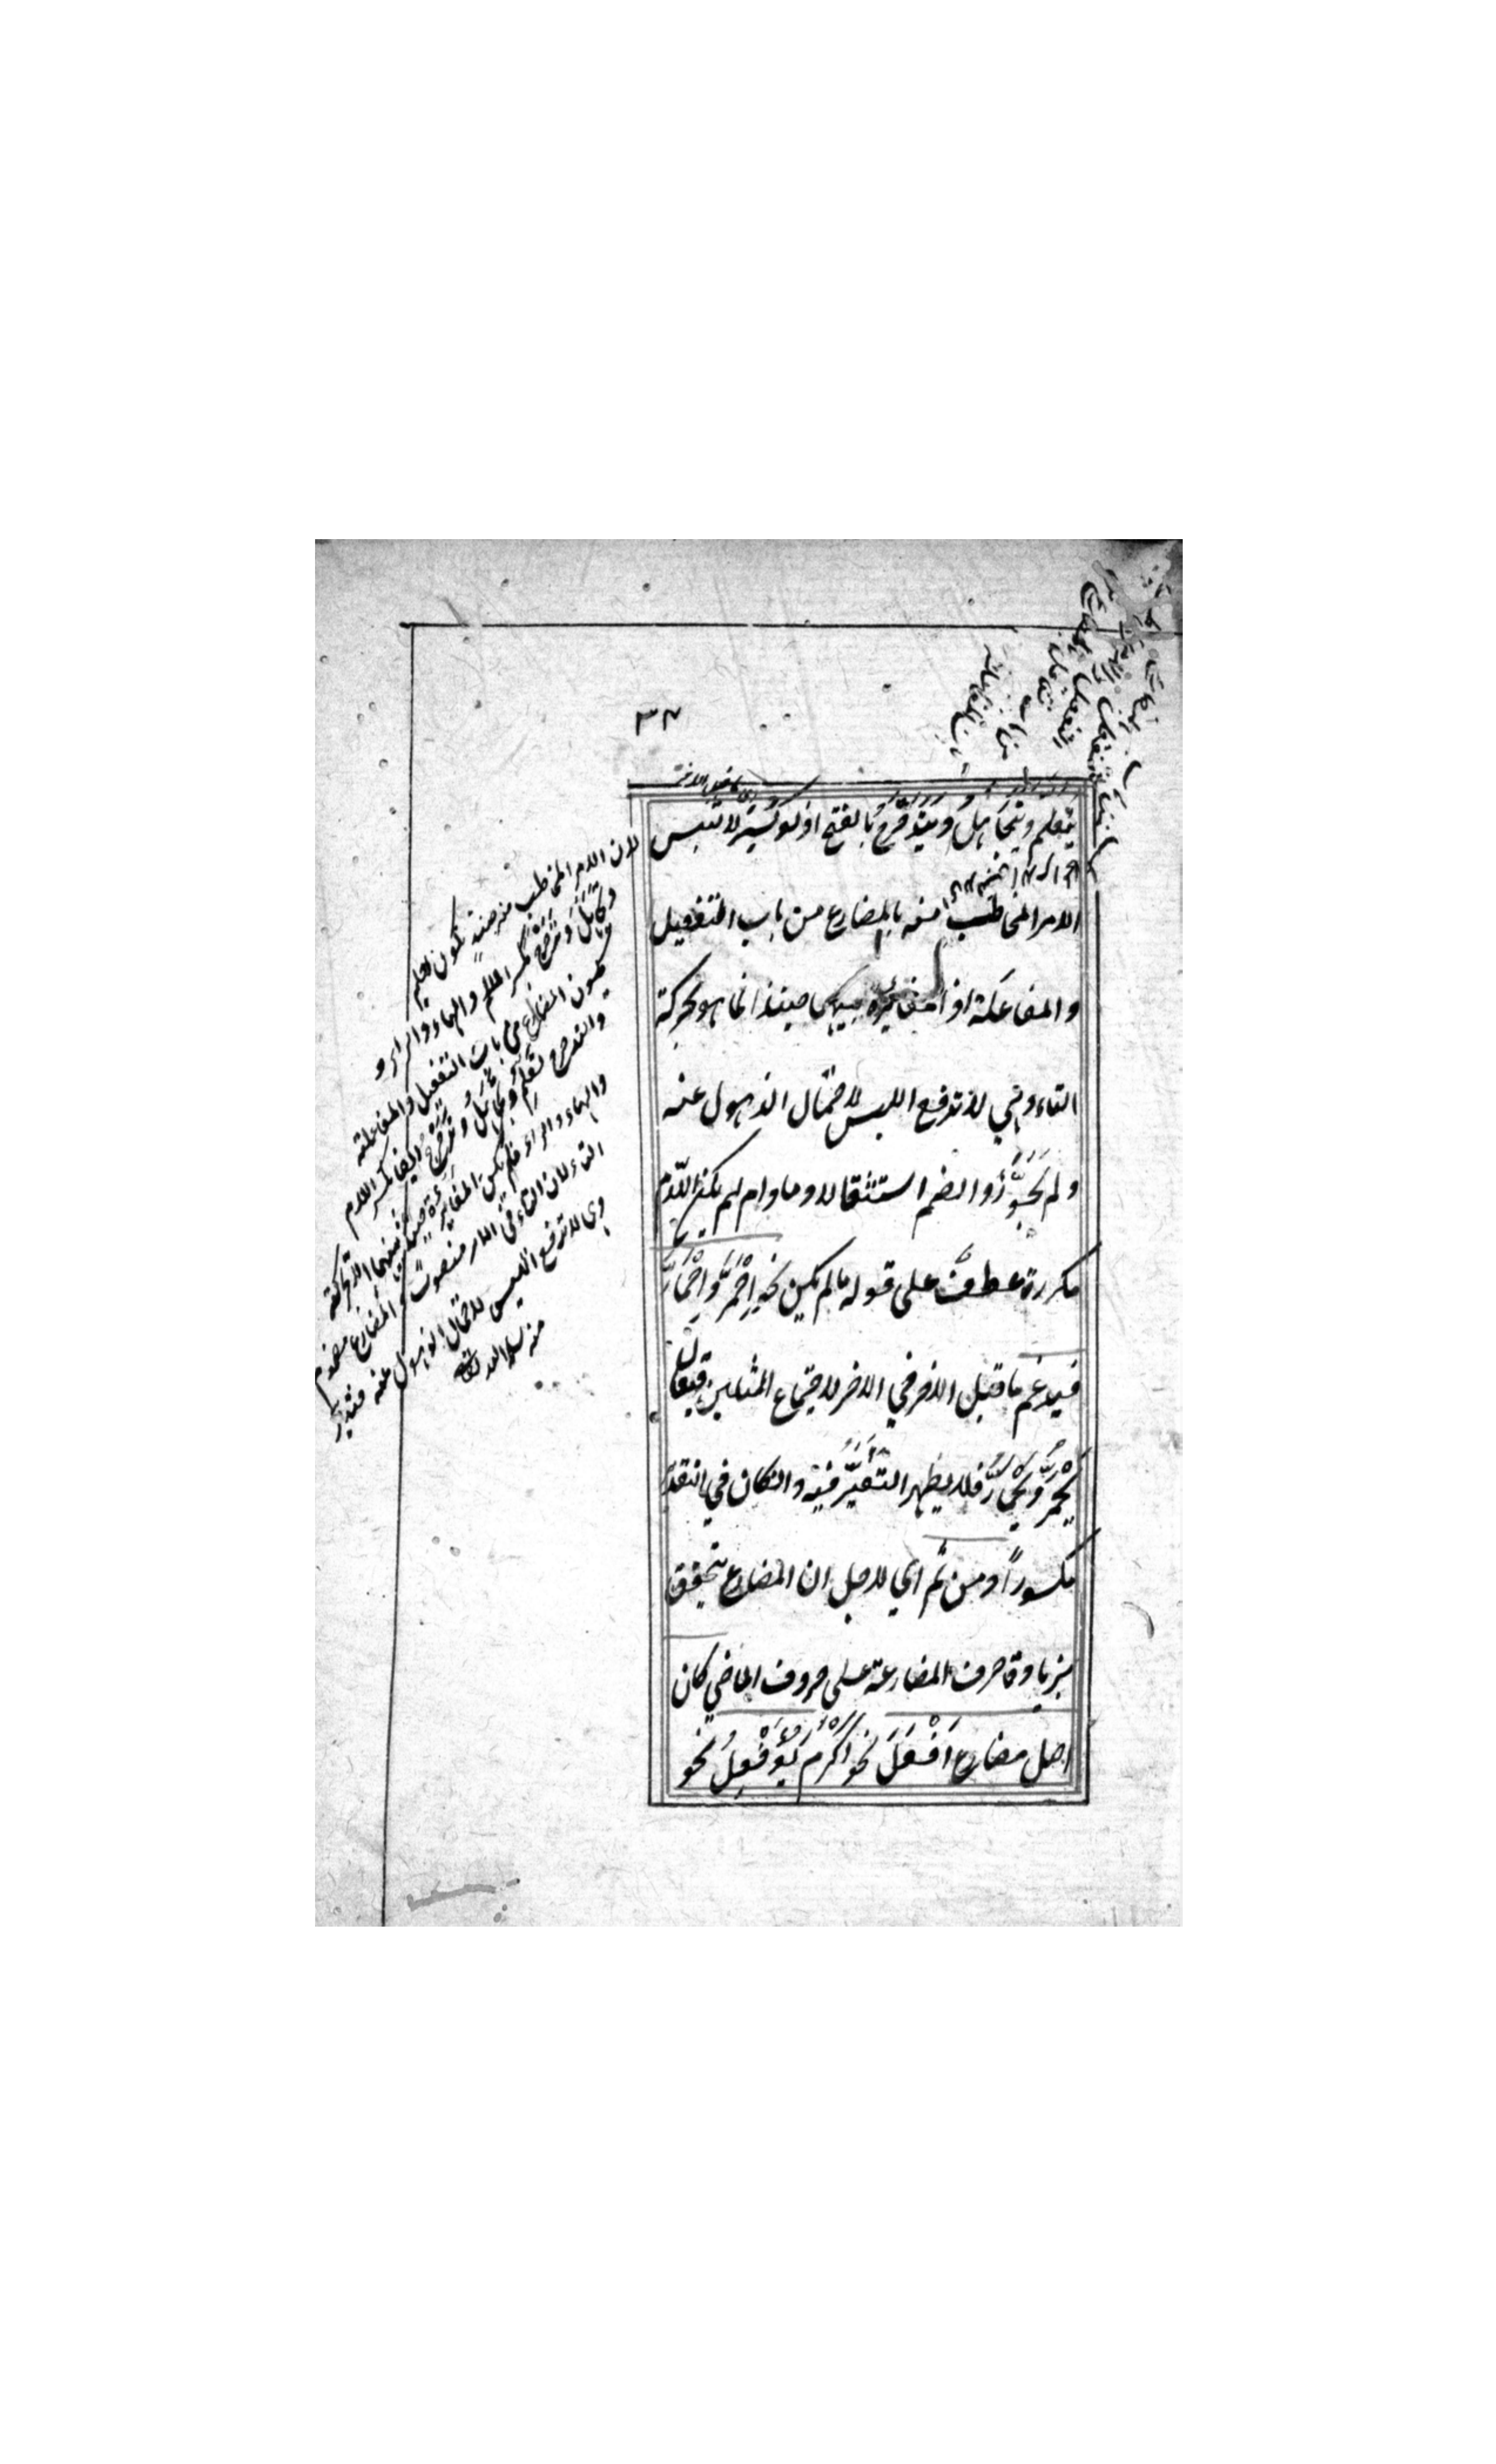 ٣٧
يتعلم ويتجاهل ويتدحرج بالفتح اذ لو كسر لالتبس
الامر المخاطب منه بالمضارع من باب التفعيل
والمفاعلة اذ المغايرة بينهما حينئذ انما هو بحركة
التاء وهي لا تدفع اللبس لاحتمال الذهول عنه
ولم يجوزوا الضم استثقالا وما دام لم يكن اللام
مكررة عطف على قوله ما لم يكن نحو احمرّ واحمارّ
فيدغم ما قبل الاخر في الاخر لاجتماع المثلين فيقال
يحمرّ ويحمارّ فلا يظهر التغيّر فيه وان كان في التقدير
مكسوراً ومن ثم اي لاجل ان المضارع يتحقق
بزيادة حرف المضارعة على حروف الماضي كان
اصل مضارع اَفْعَلَ نحو اكرم يُؤَفْعِلُ نحو
لان الامر المخاطب منه حينئذ تكون تعلم
وتجاهل وتدحرج بكسر اللام والهاء والراء و
يكون المضارع من باب التفعيل والمفاعلة
والتدحرج تعلم وتجاهل وتدحرج ايضا بكسر اللام
والهاء والراء فلم يكن المغايرة حينئذ بينهما الا بحركة
التاء لان التاء في الامر منصوب وفي المضارع مضموم
وهي لا تدفع اللبس لاحتمال الذهول عنه فتدبر
منه سلمه الله